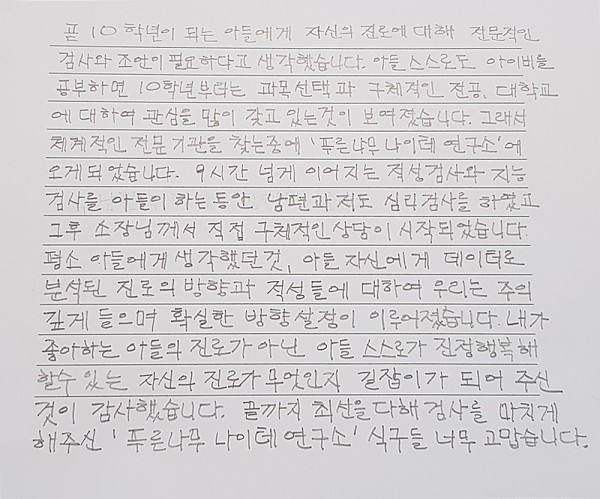 곧 10학년이 되는 아들에게 자신의 진로에 대해 전문적인
검사와 조언이 필요하다고 생각했습니다. 아들 스스로도 아이비을
공부하면 10학년부터는 과목선택과 구체적인 전공, 대학교
에 대하여 관심을 많이 갖고 있는것이 보여졌습니다. 그래서
체계적인 전문기관을 찾는중에 '푸른나무 나이테 연구소'에
오게되었습니다. 9시간 넘게 이어지는 적성검사와 지능
검사를 아들이 하는동안 남편과 저도 심리검사를 하였고
그후 소장님께서 직접 구체적인 상담이 시작되었습니다.
평소 아들에게 생각했던것, 아들 자신에게 데이터로
분석된 진로의 방향과 적성들에 대하여 우리는 주의
깊게 들으며 확실한 방향설정이 이루어졌습니다. 내가
좋아하는 아들의 진로가 아닌 아들 스스로가 진정행복해
할수 있는 자신의 진로가 무엇인지 길잡이가 되어 주신
것이 감사했습니다. 끝까지 최선을다해 검사를 마치게
해주신 '푸른나무 나이테 연구소' 식구들 너무 고맙습니다.